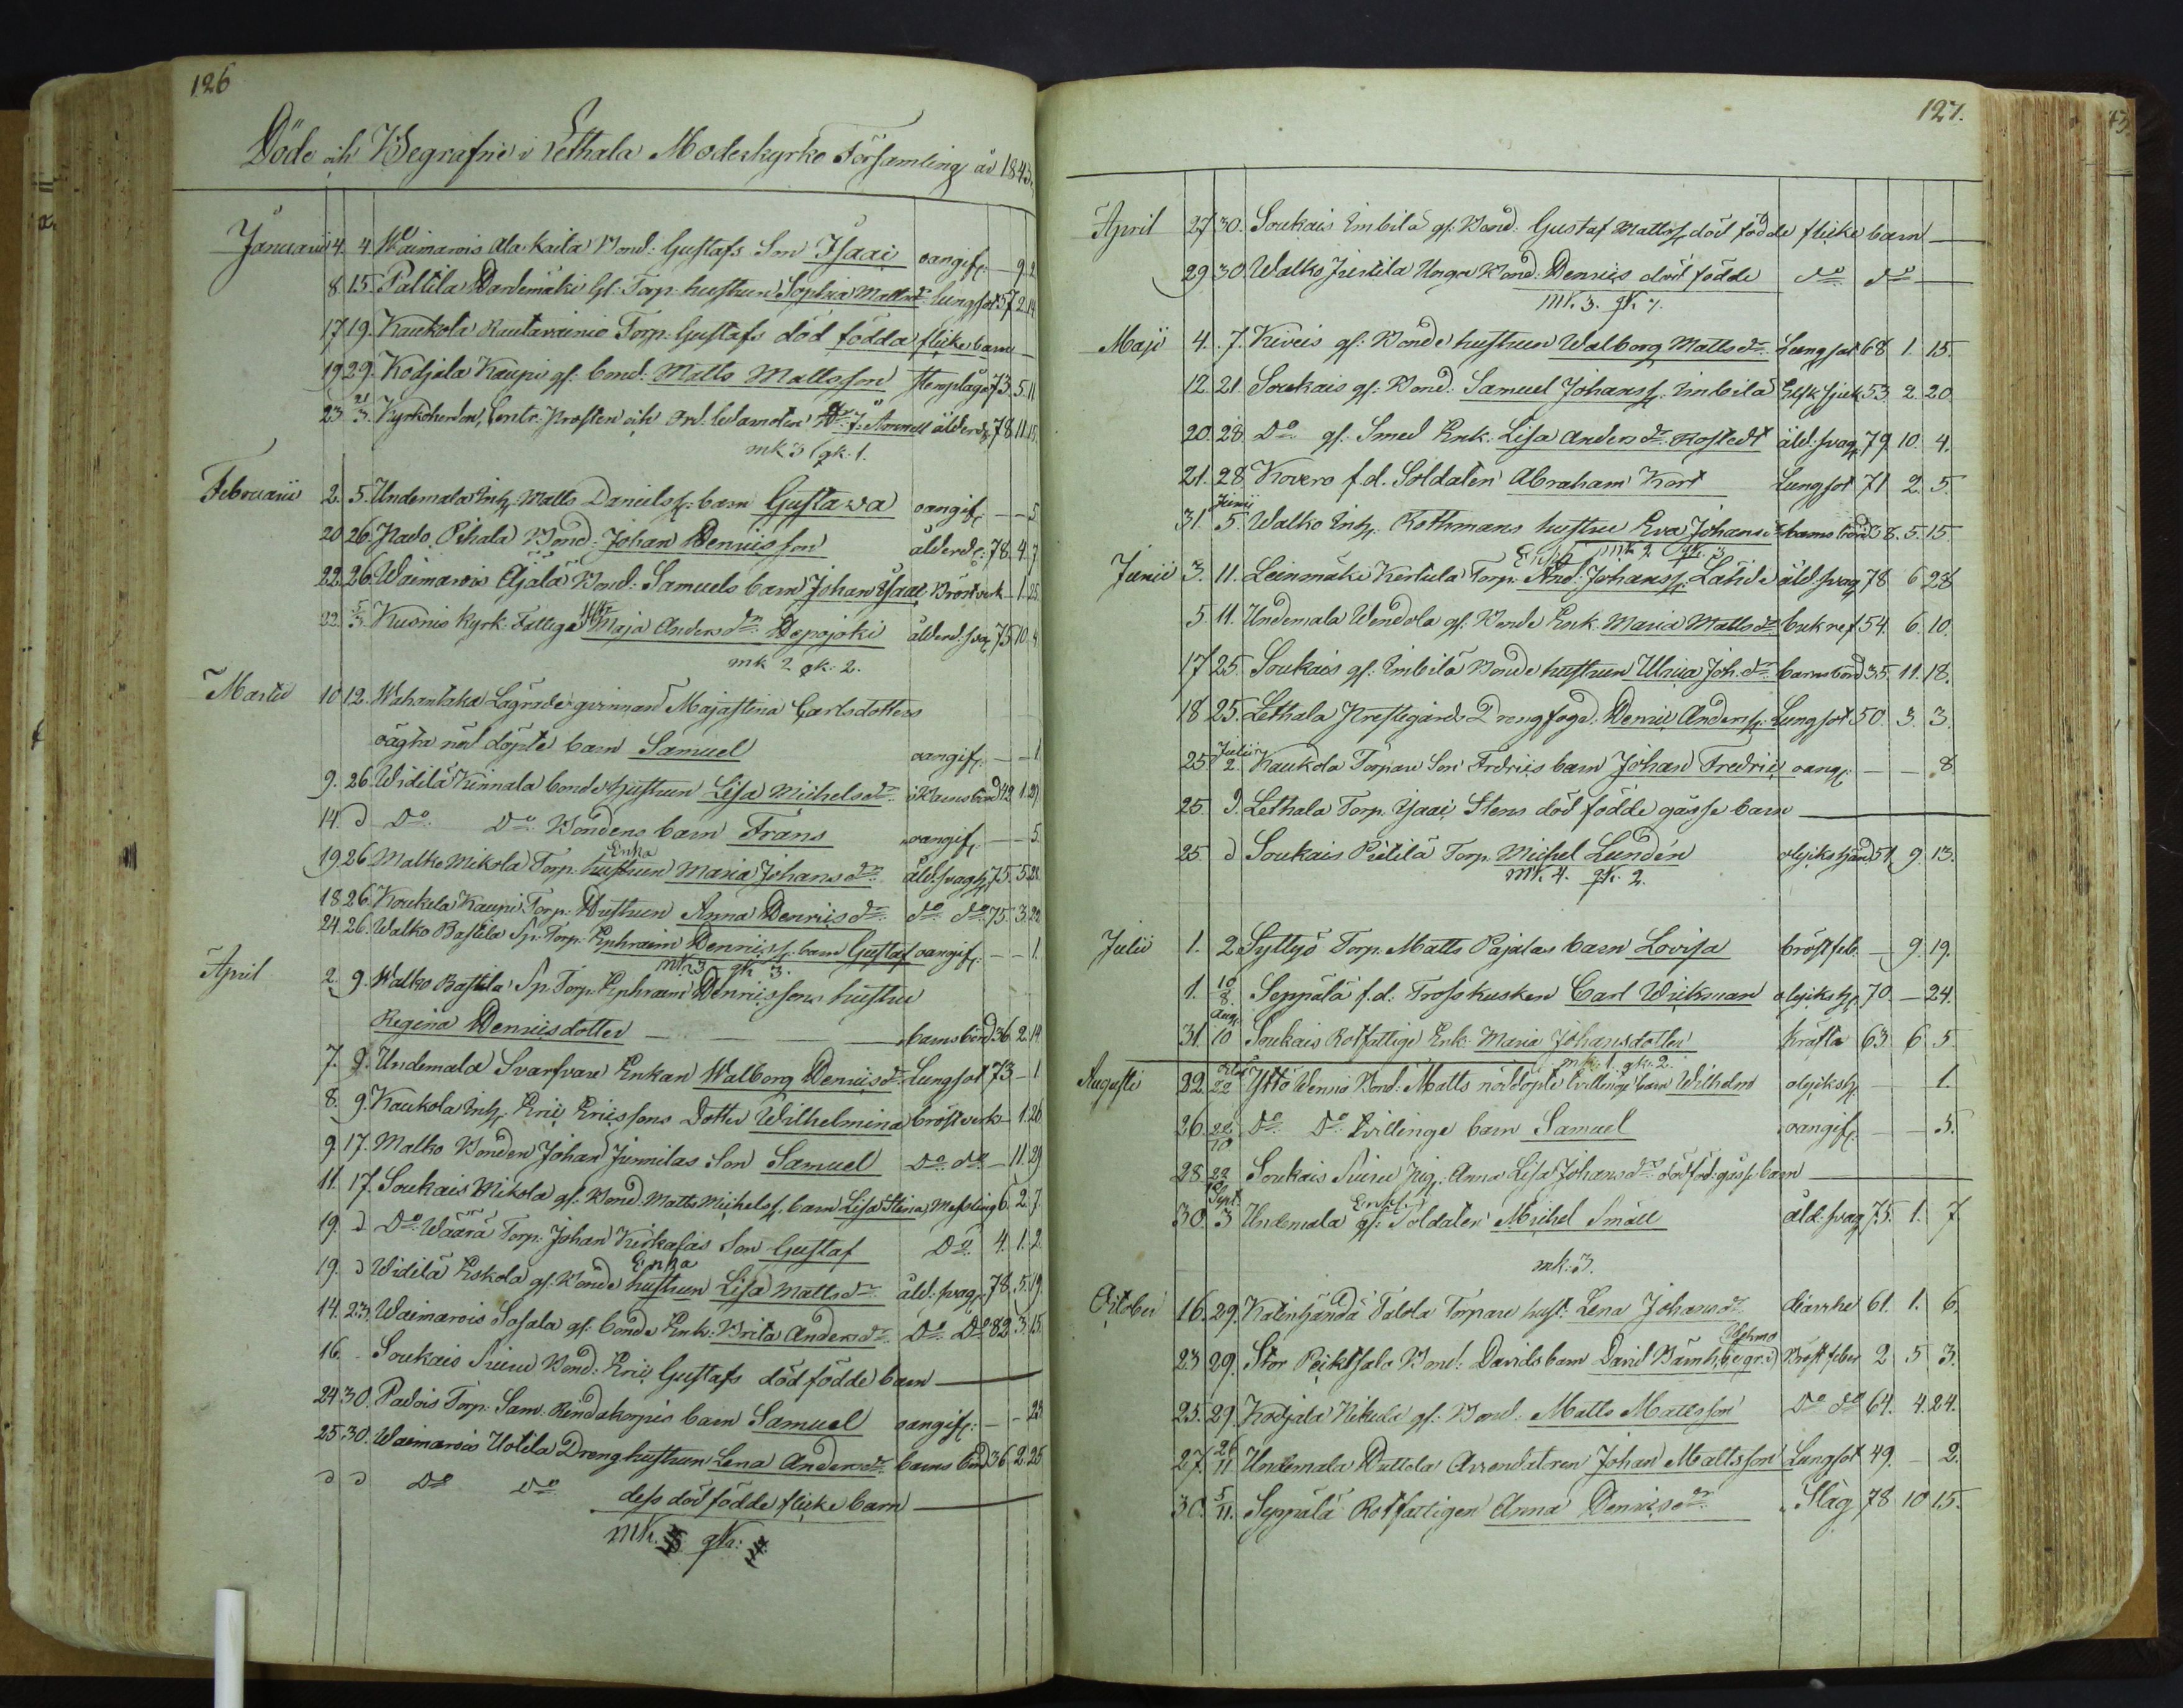 126
Döde och Begrafne i Lethala Moderkyrko Församling år 1843.
Januarii 4. 4. Waimarois Ala Kaila Bond: Gustafs Son Isaac oangif: — 9. 2
8 15. Paltila Gl: Torp. hustrun Sophia Matts dr Lungsot 57 2 14
17 19. Kaukola Rautavainio Torp: Gustafs död födda flicke barn —
19 29. Kodjala Kaupi gf: bond: Matts Mattsson stenplåga 73. 5. 11
23 21/3. Kyrkoherden, Contr: Prosten och Ord. ledamoten älderds 78. 11. 15.
mk 3 qk: 1.
Februarii 2. 5. Undemala Inh. Matts Danielss: barn Gustava oangif: — — 5
20 26. Nado Pihala Bond: Johan Dennisson älderd: 78. 4. 7
22. 26. Waimarois Äjälä Bond: Samuels barn Johan Isaac Bröstverk — 1. 25.
22. 5/3. Kusnis kyrk: Fattiga Maja Anders dr Depojoki älderd. svag 75 10. 4
mk 2 qk: 2.
Martii 10 12. Wahantaka Lägrade qvinnan Majastina Carlsdotters
oägta nöd döpte barn Samuel oangif: — — 1
9. 26. Widilä Kinnala bonde hustrun Lisa Michels dr i Barnsbörd 42. 1. 21
14. d Do Do Bondens barn Frans oangif: — — 5.
19 26 Malko Mikola Torp. hustrun Enka Maria Johans dr äld. svagh 75. 5 21.
18. 26. Koukela Kaupi Torp: Hustrun Anna Dennis dr do do 75. 3. 22
24. 26. Walko Bastila Sp: Torp. Ephraim Denniss: barn Gustaf oangif: — — 1.
mk 3 qk 3.
April 2. 9. Walko Bastila Sp. Torp. Ephraim Dennissons hustru
Regina Dennisdotter — barnsbörd 36 2. 14
7. 9. Undemala Svarfvare Enkan Walborg Dennis dr Lungsot 73 — 1
8. 9. Kaukola Inh. Eric Ericssons Dotter Wilhelmina bröstverk — 1. 26
9. 17. Malko Bonden Johan Junnilas Son Samuel Do do — 11. 29
11. 17. Soukais Mikola gf: Bond. Matts Michelss. barn Lisa Stina Messling 6. 2. 7.
19. d Do Wäärä Torp. Johan Kirkalais Son Gustaf Do 4. 1. 2.
19. d Widilä Eskola gf: Bonde hustrun Enka Lisa Matts dr äld: svag: 78. 5. 19.
14. 23. Waimarois Sasala gf: bonde Enk: Brita Anders dr Do Do 82 3. 15.
16. - Soukais Suiru Bond: Eric Gustafs död födde barn —
24 30. Padois Torp: Sam: Rindakorpis barn Samuel oangif: — — 23
25. 30. Waimarois Uotila Dreng hustrun Lena Anders dr barns börd 36 2. 25
d d Do Do dess död födde flicke barn —
Mk. qk:
127.
April 27 30. Soukais Imbila gf: Bond: Gustaf Mattss. död födde flicke barn —
29 30 Walko Juntila Unga Bond: Dennis död födde do do —
Mk. 3. qk 7.
Maji 4. 7. Kiveis gf: Bonde hustrun Walborg Matts dr Lungsot 68 1. 15.
12. 21. Soukais gf: Bond: Samuel Johanss. Imbila 53. 2. 20.
20. 28. Do gf: Smed Enk: Lisa Anders dr Rostedt äld: svag: 79. 10. 4.
21. 28. Kovero f.d. Soldaten Abraham Kort Lungsot 71. 2. 5.
31. Junii 5. Walko Inh. Rothmans hustru Eva Johans dr barns börd 38. 5. 15.
mk 2 qk: 3
Junii 3. 11. Leinmäki Kertula Torp: And: Johanss: Lähde äld. svag 78 6 28
5. 11. Undemala Wendola gf. Bonde Enk. Maria Matts dr buk ref 54. 6. 10.
17 25. Soukais gf. Imbila Bonde hustrun Ulrica Joh. dr barnsbörd 35. 11. 18.
18 25. Lethala Prestegårds Drengfogd. Dennis Anderss. Lungsot 50. 3. 3.
25 Julii 2. Kaukola Torpare Son Fredrics barn Johan Fredric oang: — — 8
25. d. Lethala Torp. Isaac Stens död födde gosse barn —
25. d Soukais Pietilä Torp. Michel Lundén olyckshänd 51. 9. 13.
Mk. 4. qk. 2.
Julii 1. 2. Syttyö Torp. Matts Pajalas barn Lovisa bröstfeb. — 9. 19.
1. 10/8. Seppälä f.d. Trosskusken Carl Wickman olyckst: 70. — 24.
31. Aug: 10 Soukais Rotfattige Enk: Maria Johansdotter kräfta 63 6 5.
mk: 1. qk: 2.
Augusti 22. Ylttö Wennä Bond: Matts nöddöpte tvillinge barn Wilhelm olyckst: — 1.
26. 22/10 Do Do tvillinge barn Samuel oangif: — — 5.
28 22/10 Soukais Suiru Pig: Anna Lisa Johans dr dödföd: gosse barn —
30. Sept. 3 Undemala gf: Soldaten Michel Småll äld: svag: 75. 1. 7
mk: 3.
October 16. 29. Katinhändä Talola Torpare hust: Lena Johans dr diarrhé 61. 1. 6.
23 29. Stor Peiktsala Bond: Davids barn David Wehmo Bröst feber 2 5 3.
25. 29. Kodjala Nikula gf: Bond: Matts Mattsson Do do 64. 4. 24.
27. 26/11 Undemala Duttola Arrendatoren Johan Mattsson Lungsot 49. — 2.
30. 5/11. Seppälä Rotfattigen Anna Dennis dr Slag 78 10 15.